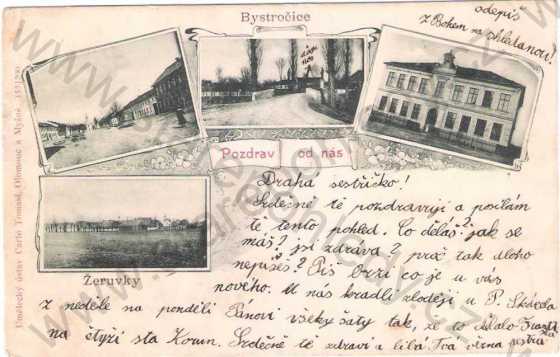 Bystročice
odepiš
z Bohem na shledanou!
Pozdrav od nás
Umělecký ústav Carlo Tomasi, Olomouc a Mýzlič.
Žeruvky
Drahá sestřičko!
Srdečně tě pozdravuji a posílám
ti tento pohled. Co děláš? jak se
máš? jsi zdráva? proč tak dloho
nepíšeš? Piš brzi co je u vás
nového. U nás kradli zloději u P.
z neděle na ponděli Pánovi všeky šaty tak, že to dělalo
na čtyři sta Korun. Srdečně tě zdraví a líbá Tvá věrná sestra